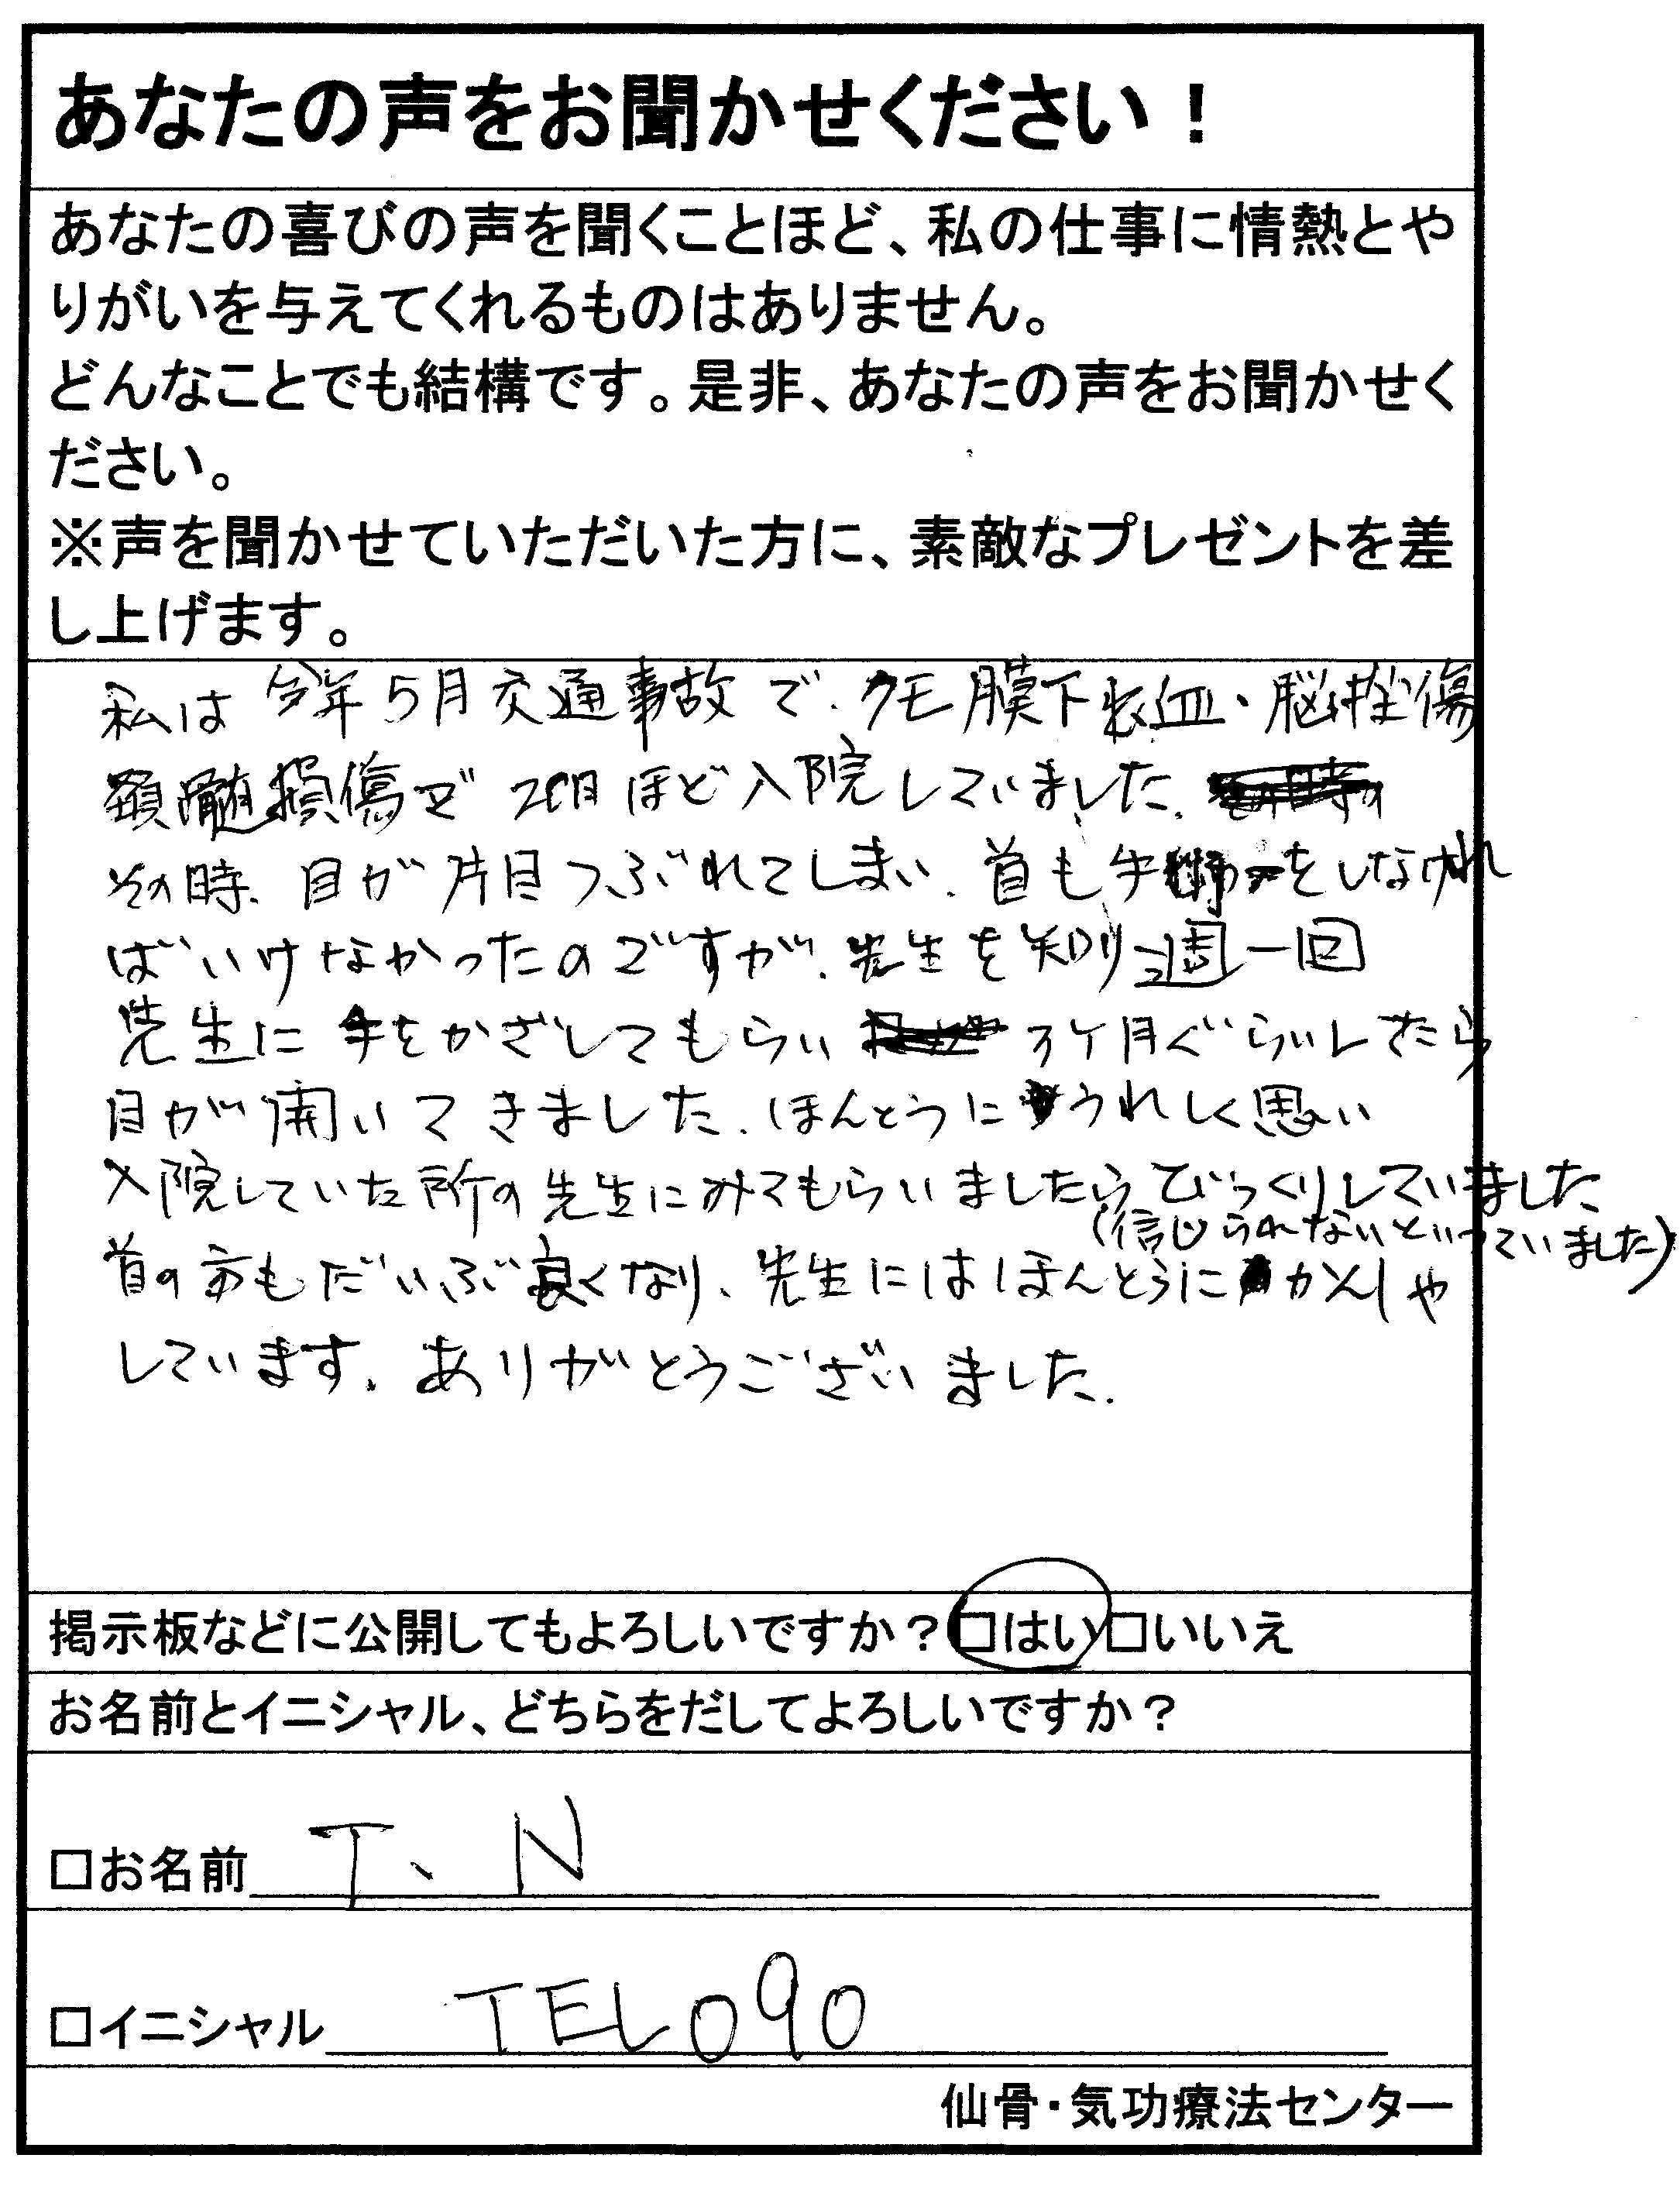 あなたの声をお聞かせください！
あなたの喜びの声を聞くことほど、私の仕事に情熱とや
りがいを与えてくれるものはありません。
どんなことでも結構です。是非、あなたの声をお聞かせく
ださい。
※声を聞かせていただいた方に、素敵なプレゼントを差
し上げます。
私は今年5月交通事故で、クモ膜下出血・脳挫傷
髄損傷で ほど入院していました。
その時、目が片目つぶれてしまい、首も手術をしなけれ
ばいけなかったのですが、先生を知り週一回
先生に手をかざしてもらい 3ケ月ぐらいしたら
目が開いてきました。ほんとうにうれしく思い
入院していた所の先生にみてもらいましたらびっくりしていました
(信じられないといっていました)
首の方もだいぶ良くなり、先生にはほんとうにかんしゃ
しています。ありがとうございました。
掲示板などに公開してもよろしいですか？□はい□いいえ
お名前とイニシャル、どちらをだしてよろしいですか？
□お名前 T、N
□イニシャル TEL090
仙骨・気功療法センター